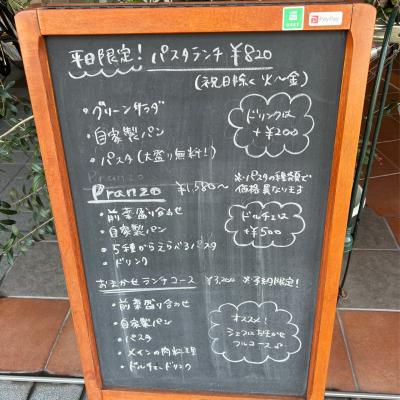 PayPay
平日限定！ パスタランチ ￥820
(祝日除く 火～金)
・グリーンサラダ
・自家製パン
・パスタ (大盛り無料！)
ドリンクは
+￥200
Pranzo
Pranzo ￥1,580～
※パスタの種類で
価格異なります
・前菜盛り合わせ
・自家製パン
・5種からえらべるパスタ
・ドリンク
ドルチェは
+￥500
おまかせランチコース ￥3,200 ※予約限定！
・前菜盛り合わせ
・自家製パン
・パスタ
・メインの肉料理
・ドルチェ、ドリンク
オススメ！
シェフにおまかせ
フルコース♪